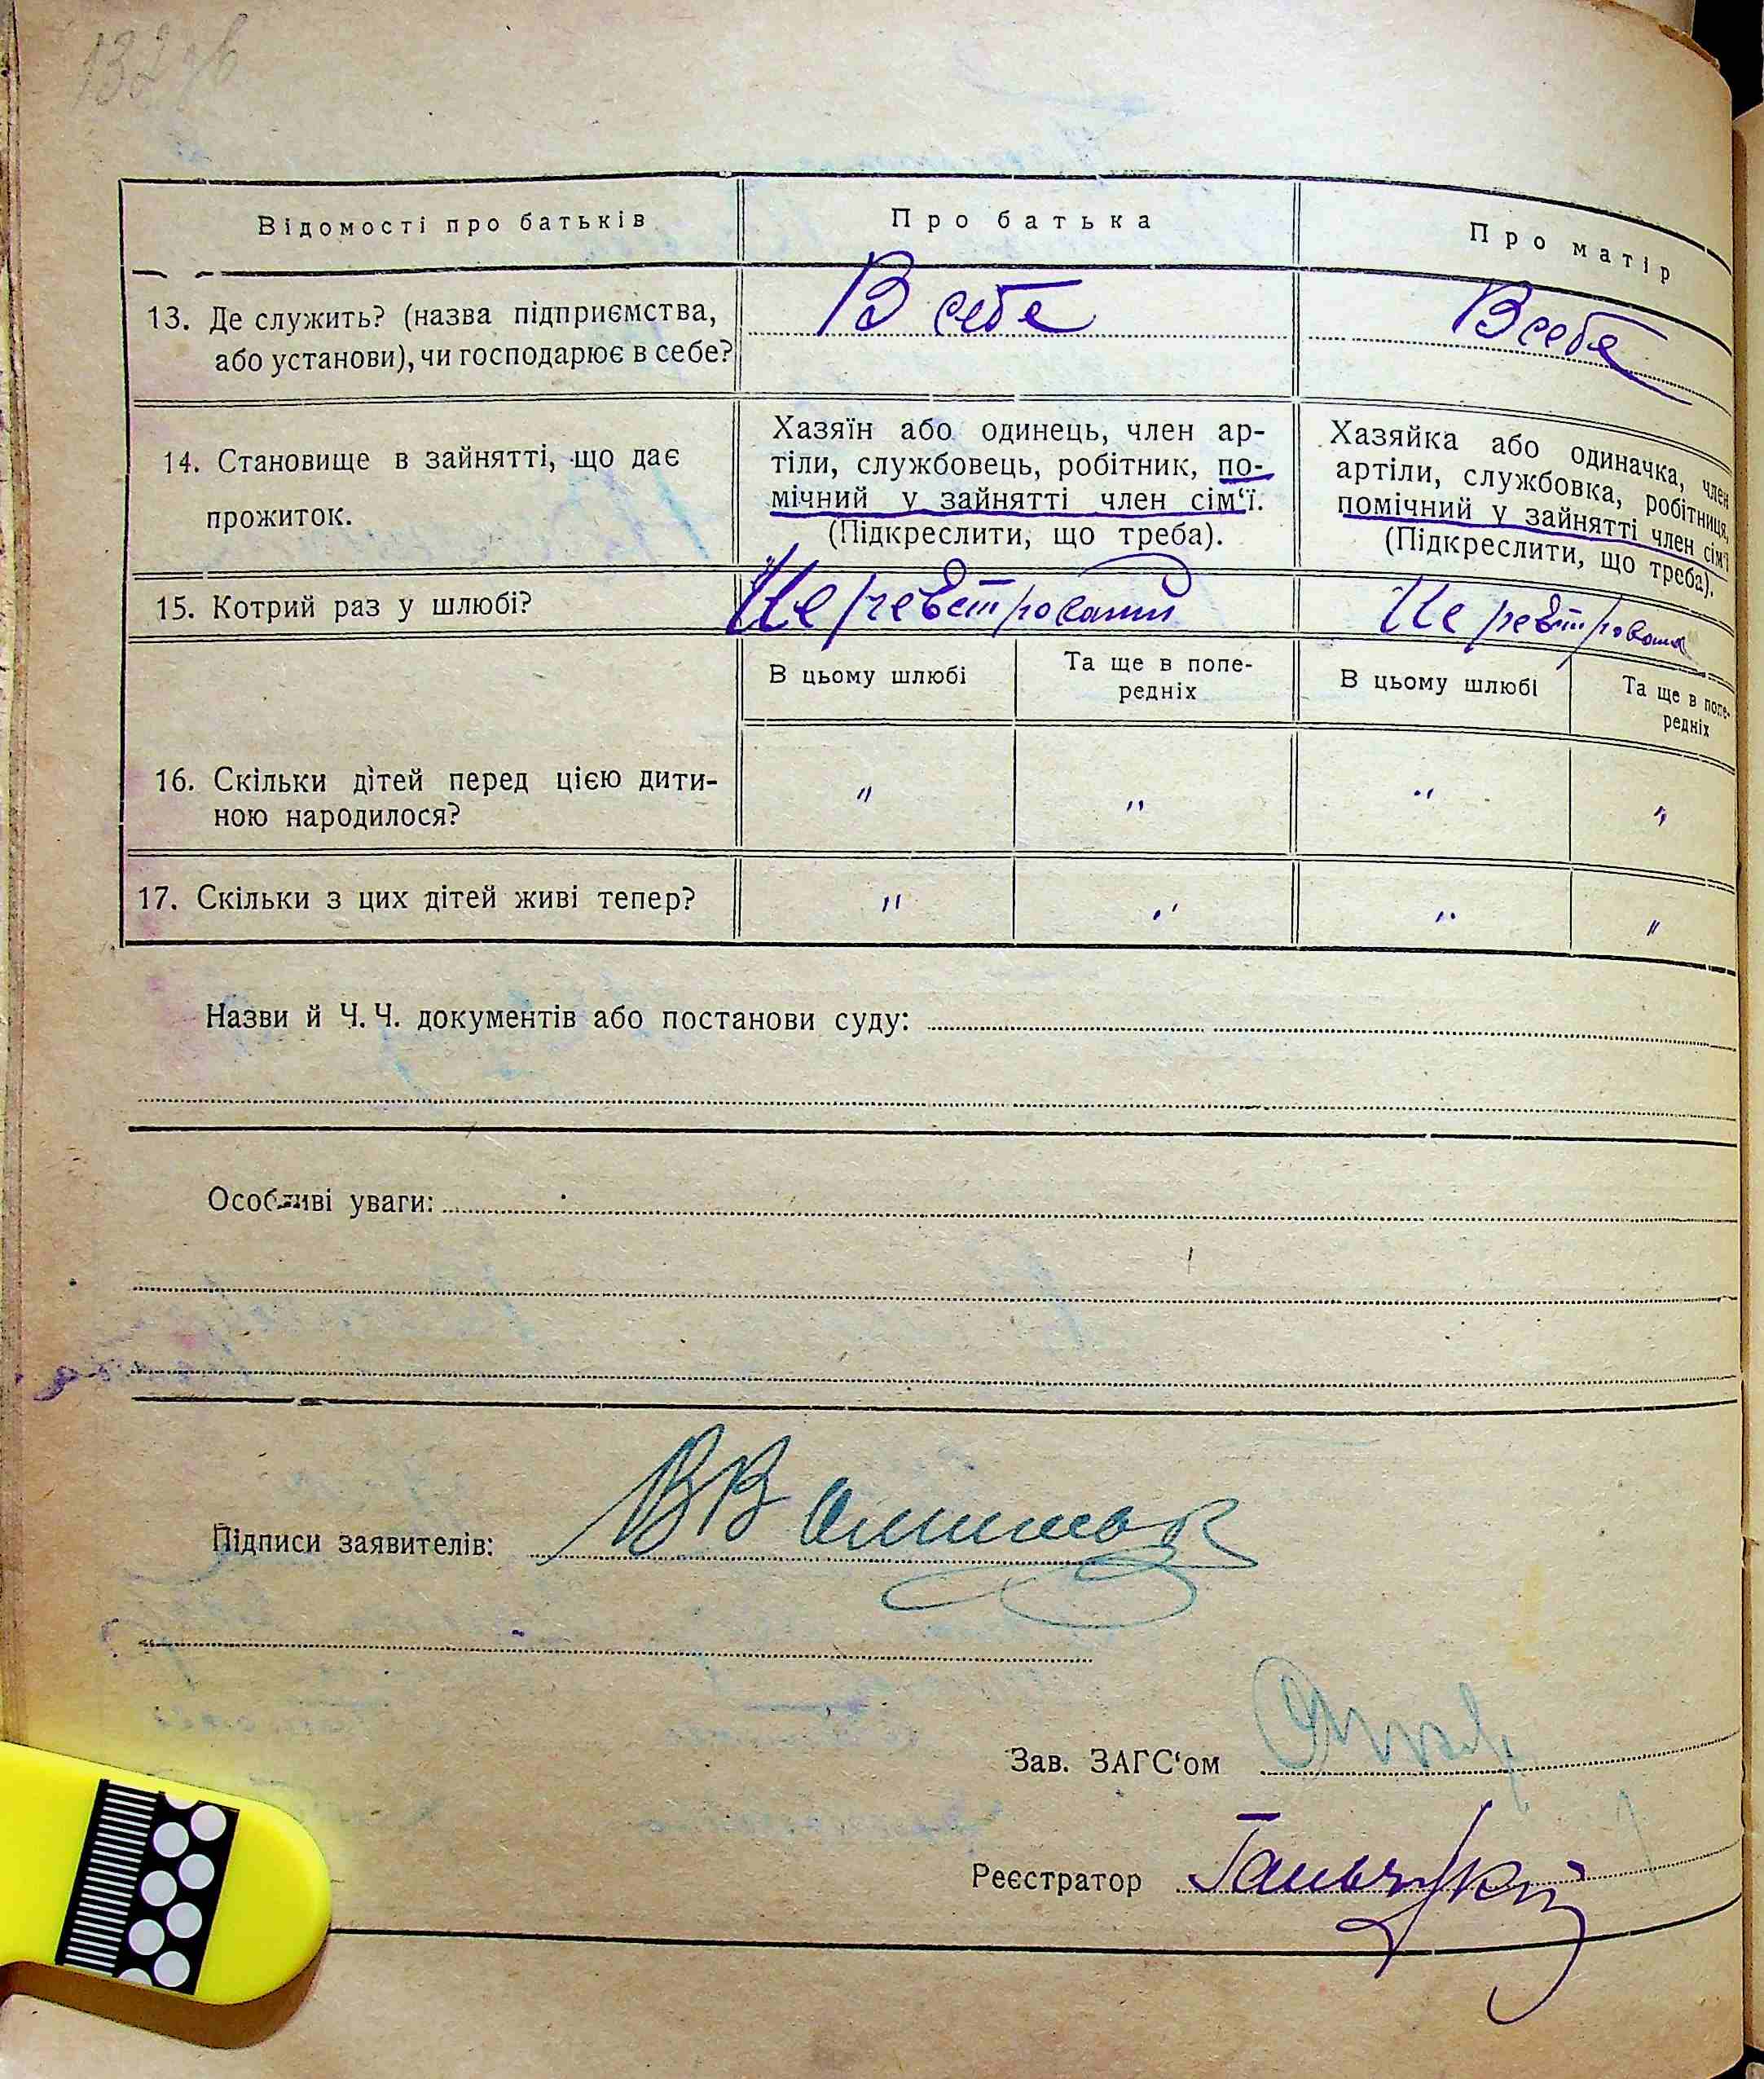 132 зв
Відомості про батьків
Про батька
Про матір
13. Де служить? (назва підприємства,
або установи), чи господарює в себе?
В себе
В себе
14. Становище в зайнятті, що дає
прожиток.
Хазяїн або одинець, член ар-
тіли, службовець, робітник, по-
мічний у зайнятті член сім‘ї.
(Підкреслити, що треба).
Хазяйка або одиначка, член
артіли, службовка, робітниця,
помічний у зайнятті член сім‘ї
(Підкреслити, що треба).
15. Котрий раз у шлюбі?
Не
Не
В цьому шлюбі
Та ще в попе-
редніх
В цьому шлюбі
Та ще в попе-
редніх
16. Скільки дітей перед цією дити-
ною народилося?
" " " "
17. Скільки з цих дітей живі тепер?
" " " "
Назви й Ч. Ч. документів або постанови суду:
Особливі уваги:
Підписи заявителів:
Зав. ЗАГС‘ом
Реєстратор